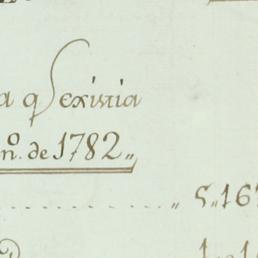 a q Sexistia
no. de 1782,,
........ ,, 5,,167